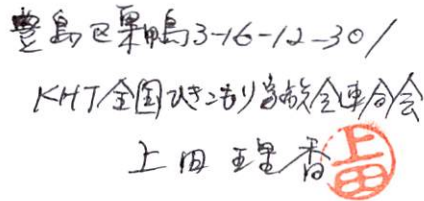 豊島区巣鴨3-16-12-301
KHJ全国ひきこもり家族会連合会
上田理香
上田